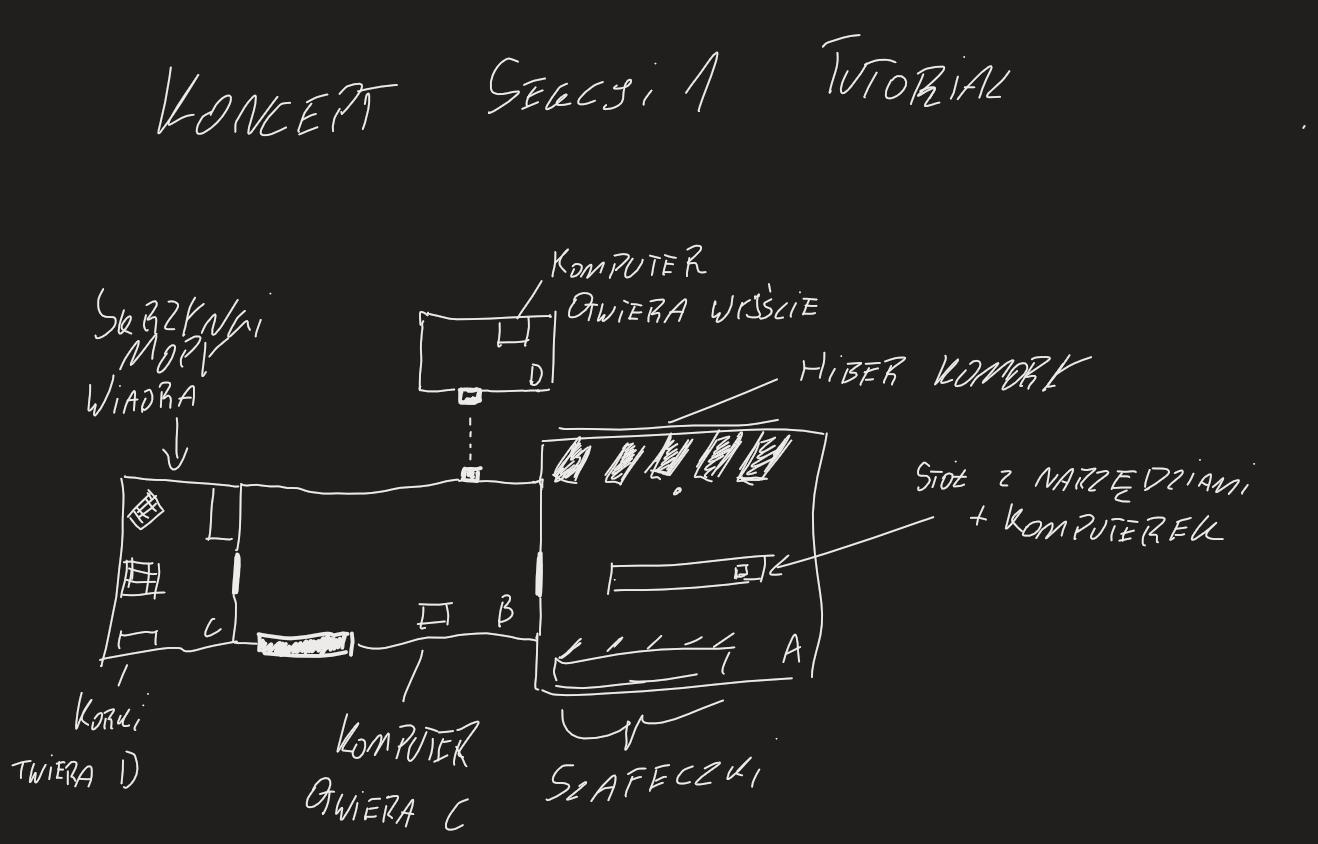 KONCEPT SEKCJI 1 TUTORIAL
KOMPUTER
OTWIERA WYJŚCIE
SKRZYNKI
MOPY
WIADRA
D
HIBER KOMORY
STÓŁ Z NARZĘDZIAMI
+ KOMPUTEREK
C
B
A
KORKI
TWIERA D
KOMPUTER
OTWIERA C
SZAFECZKI